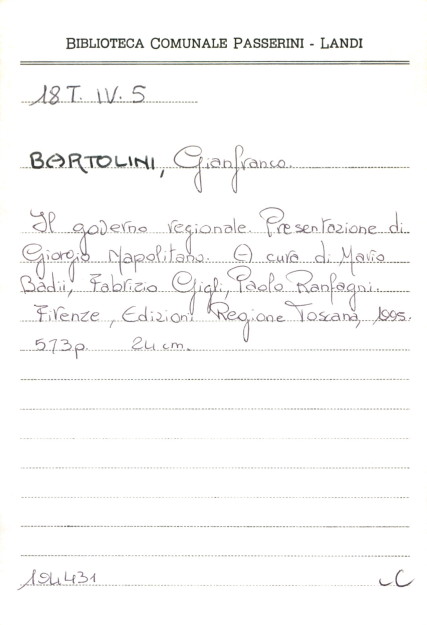 BIBLIOTECA COMUNALE PASSERINI - LANDI
18 T. IV. 5
BARTOLINI, Gianfranco.
Il governo regionale. Presentazione di
Giorgio Napolitano. A cura di Mario
Badii, Fabrizio Gigli, Paolo Ranfagni.
Firenze, Edizioni Regione Toscana, 1995.
573p. 24 cm.
194431 C